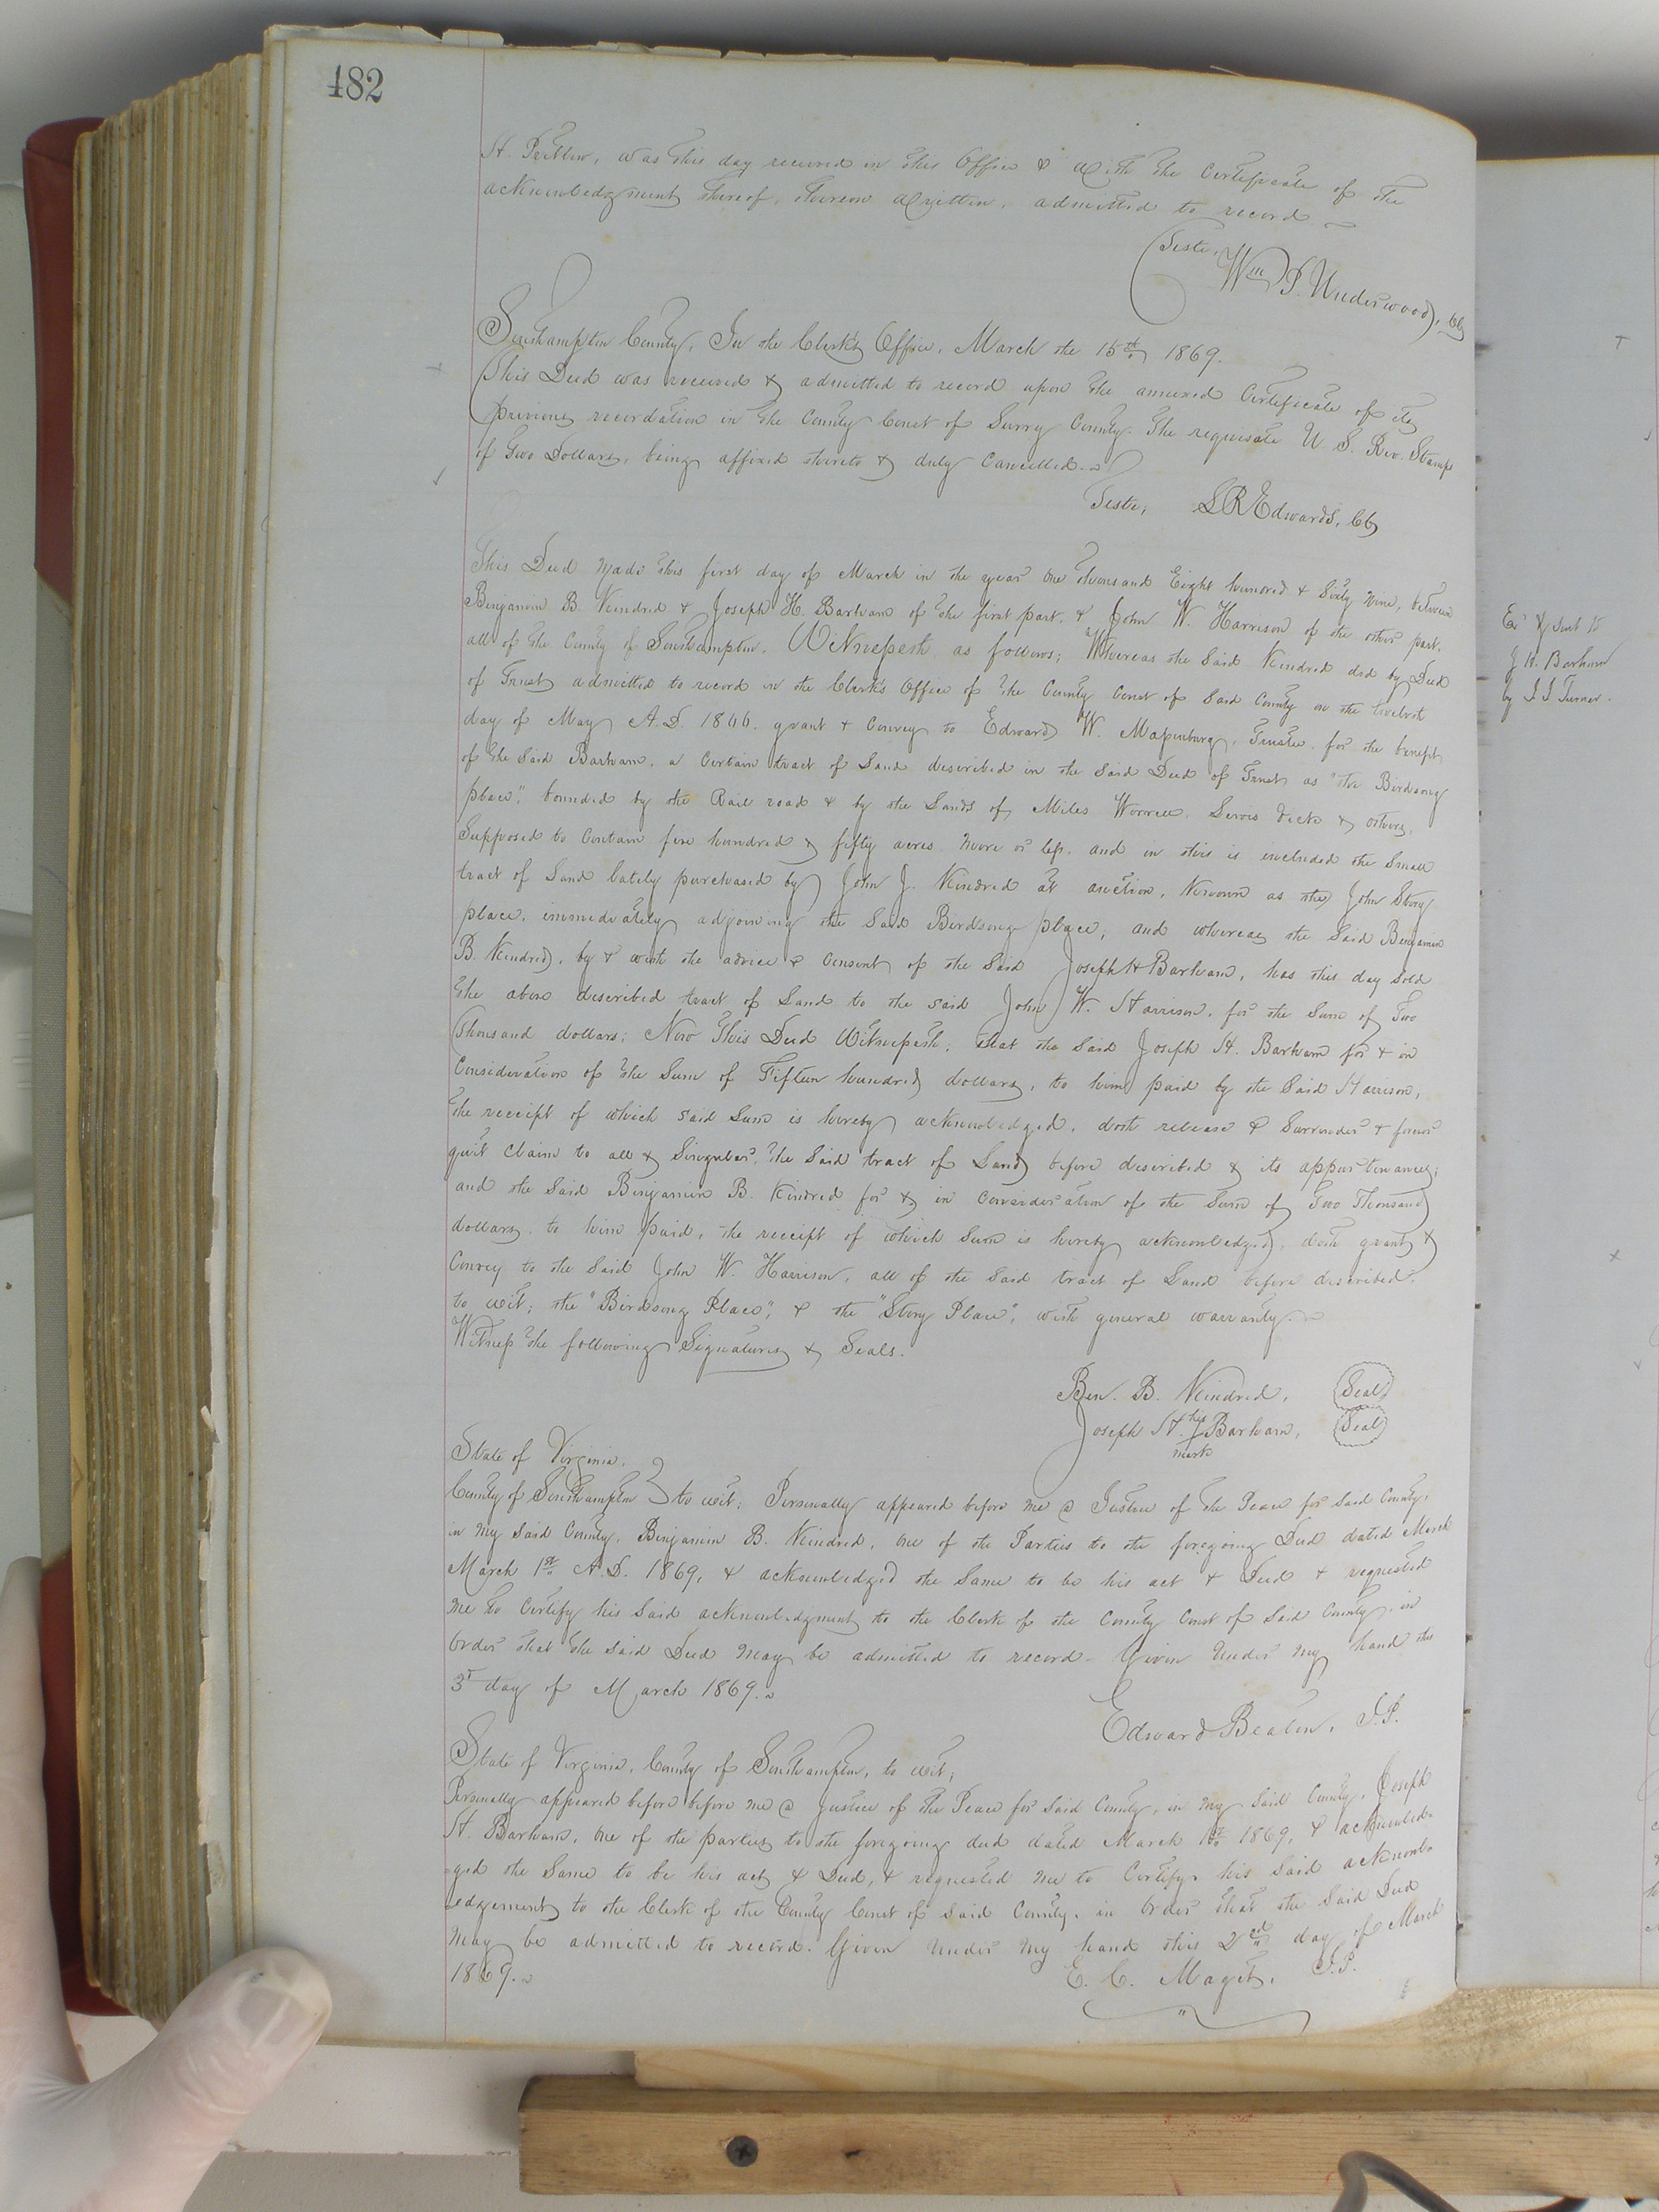 482
H. Pretlow, was this day received in this Office & with the Certificate of the
acknowledgment thereof, thereon written, admitted to record.
Teste, Wm P. Underwood, CC
Southampton County, In the Clerk's Office, March the 15th 1869.
This Deed was received & admitted to record upon the annexed Certificate of its
previous recordation in the County Court of Surry County. The requisate U. S. Rev. Stamps
of Two Dollars, being affixed thereto & duly Cancelled.
Teste, L R Edwards, CC
This Deed made this first day of March in the year One thousand Eight hundred & Sixty nine, between
Benjamin B. Kindred & Joseph H. Barham of the first part, & John W. Harrison of the other part,
all of the County of Southampton. Witnesseth as follows; Whereas the Said Kindred did by Deed
of Trust admitted to record in the Clerk's Office of the County Court of Said County on the twelvth
day of May A.D. 1866. grant & Convey to Edward W. Massenburg, Trustee, for the benefit
of the Said Barham, a Certain tract of Land described in the Said Deed of Trust as "the Birdsong
place", bounded by the Rail road & by the Lands of Miles Worrell, & others,
Supposed to Contain five hundred & fifty acres more or less, and in this is included the Small
tract of Land lately purchased by John J. Kindred at auction, Known as the John Story
place, immediately adjoining the Said Birdsong place; and whereas the Said Benjamin
B. Kindred, by & with the advice & Consent of the Said Joseph H Barham, has this day Sold
the above described tract of Land to the said John W. Harrison, for the Sum of Two
Thousand dollars; Now This Deed Witnesseth, that the Said Joseph H. Barham for & in
Consideration of the Sum of Fifteen hundred dollars, to him paid by the Said Harrison,
the receipt of which said Sum is hereby acknowledged, doth release & Surrender & forever
quit Claim to all & Singular, the Said tract of Land before described & its appurtenances;
and the Said Benjamin B. Kindred for & in Consideration of the Sum of Two Thousand
dollars, to him paid, the receipt of which Sum is hereby acknowledged, doth grant &
Convey to the Said John W. Harrison, all of the Said tract of Land before described,
to wit; the "Birdsong Place", & the "Story Place", with general warranty.
Witness the following Signatures & Seals.
Ben. B. Kindred, Seal
Joseph H. his Barham, Seal
mark
State of Virginia,
County of Southampton to wit; Personally appeared before me a Justice of the Peace for Said County,
in my Said County, Benjamin B. Kindred, One of the Parties to the foregoing Deed dated March
March 1st A.D. 1869, & acknowledged the Same to be his act & Deed & requested
me to Certify his Said acknowledgment to the Clerk of the County Court of Said County, in
Order that the Said Deed may be admitted to record. Given Under My hand this
3r day of March 1869.
Edward Beaton, J.P.
State of Virginia, County of Southampton, to wit;
Personally appeared before before me a Justice of the Peace for Said County, in my Said County, Joseph
H. Barham, One of the parties to the foregoing deed dated March 1st 1869, & acknowled-
-ged the Same to be his act & Deed, & requested me to Certify his Said acknowl-
edgement to the Clerk of the County Court of Said County, in Order that the Said Deed
may be admitted to record. Given Under My hand this 2nd day of March
1869.
E. C. Maget, J.P.
J H. Barham
by J J Turner.